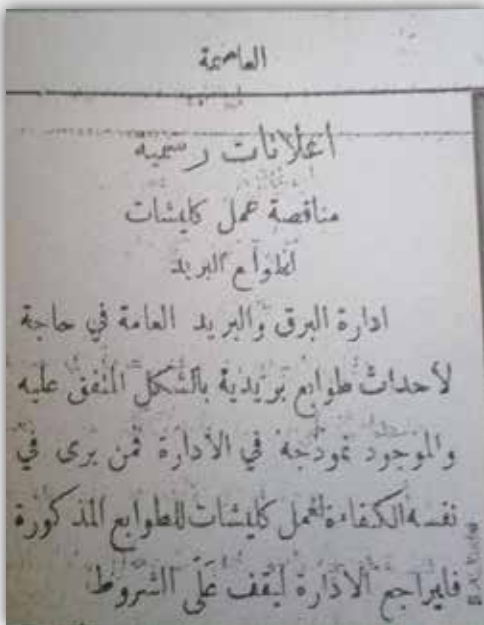 العاصمة
أعلانات رسمية
مناقصة عمل كليشات
لطوابع البريد
ادارة البرق والبريد العامة في حاجة
لأحداث طوابع بريدية بالشكل المتفق عليه
والموجود نموذجه في الأدارة فمن يرى في
نفسه الكفاءة لعمل كليشات للطوابع المذكورة
فليراجع الأدارة ليقف على الشروط